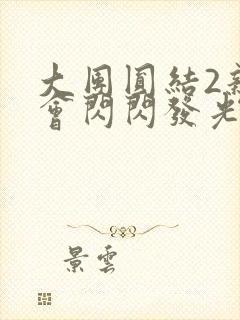 大團圓結2
會閃閃發光
景雲